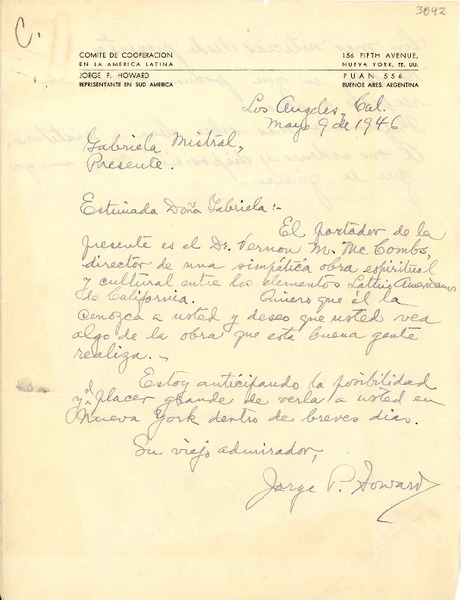 C.
3042
COMITE DE COOPERACION
EN LA AMERICA LATINA
JORGE P. HOWARD
REPRESENTANTE EN SUD AMERICA
156 FIFTH AVENUE,
NUEVA YORK, EE. UU.
PUAN 556
BUENOS AIRES, ARGENTINA
Los Angeles, Cal.
Mayo 9 de 1946
Gabriela Mistral,
Presente.
Estimada Doña Gabriela:-
El portador de la
presente es el Dr. Vernon M. McCombs,
director de una simpática obra espiritual
y cultural entre los elementos Latino Americanos
de California. Quiero que él la
conozca a usted y deseo que usted vea
algo de la obra que esta buena gente
realiza.-
Estoy anticipando la posibilidad
y el placer grande de verla a usted en
Nueva York dentro de breves dias.
Su viejo admirador,
Jorge P. Howard